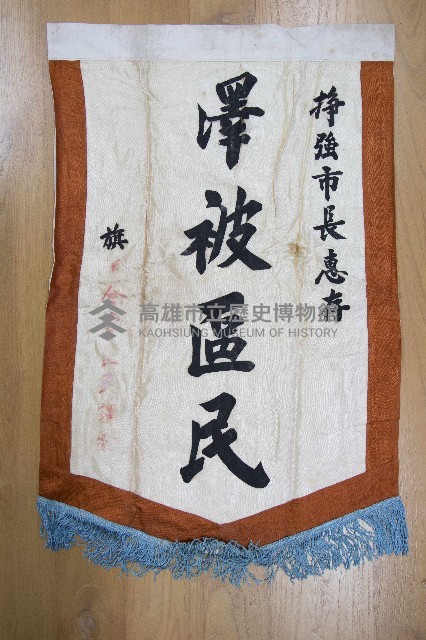 掙強市長惠存
澤被區民
旗
高雄市立歷史博物館
KAOHSIUNG MUSEUM OF HISTORY